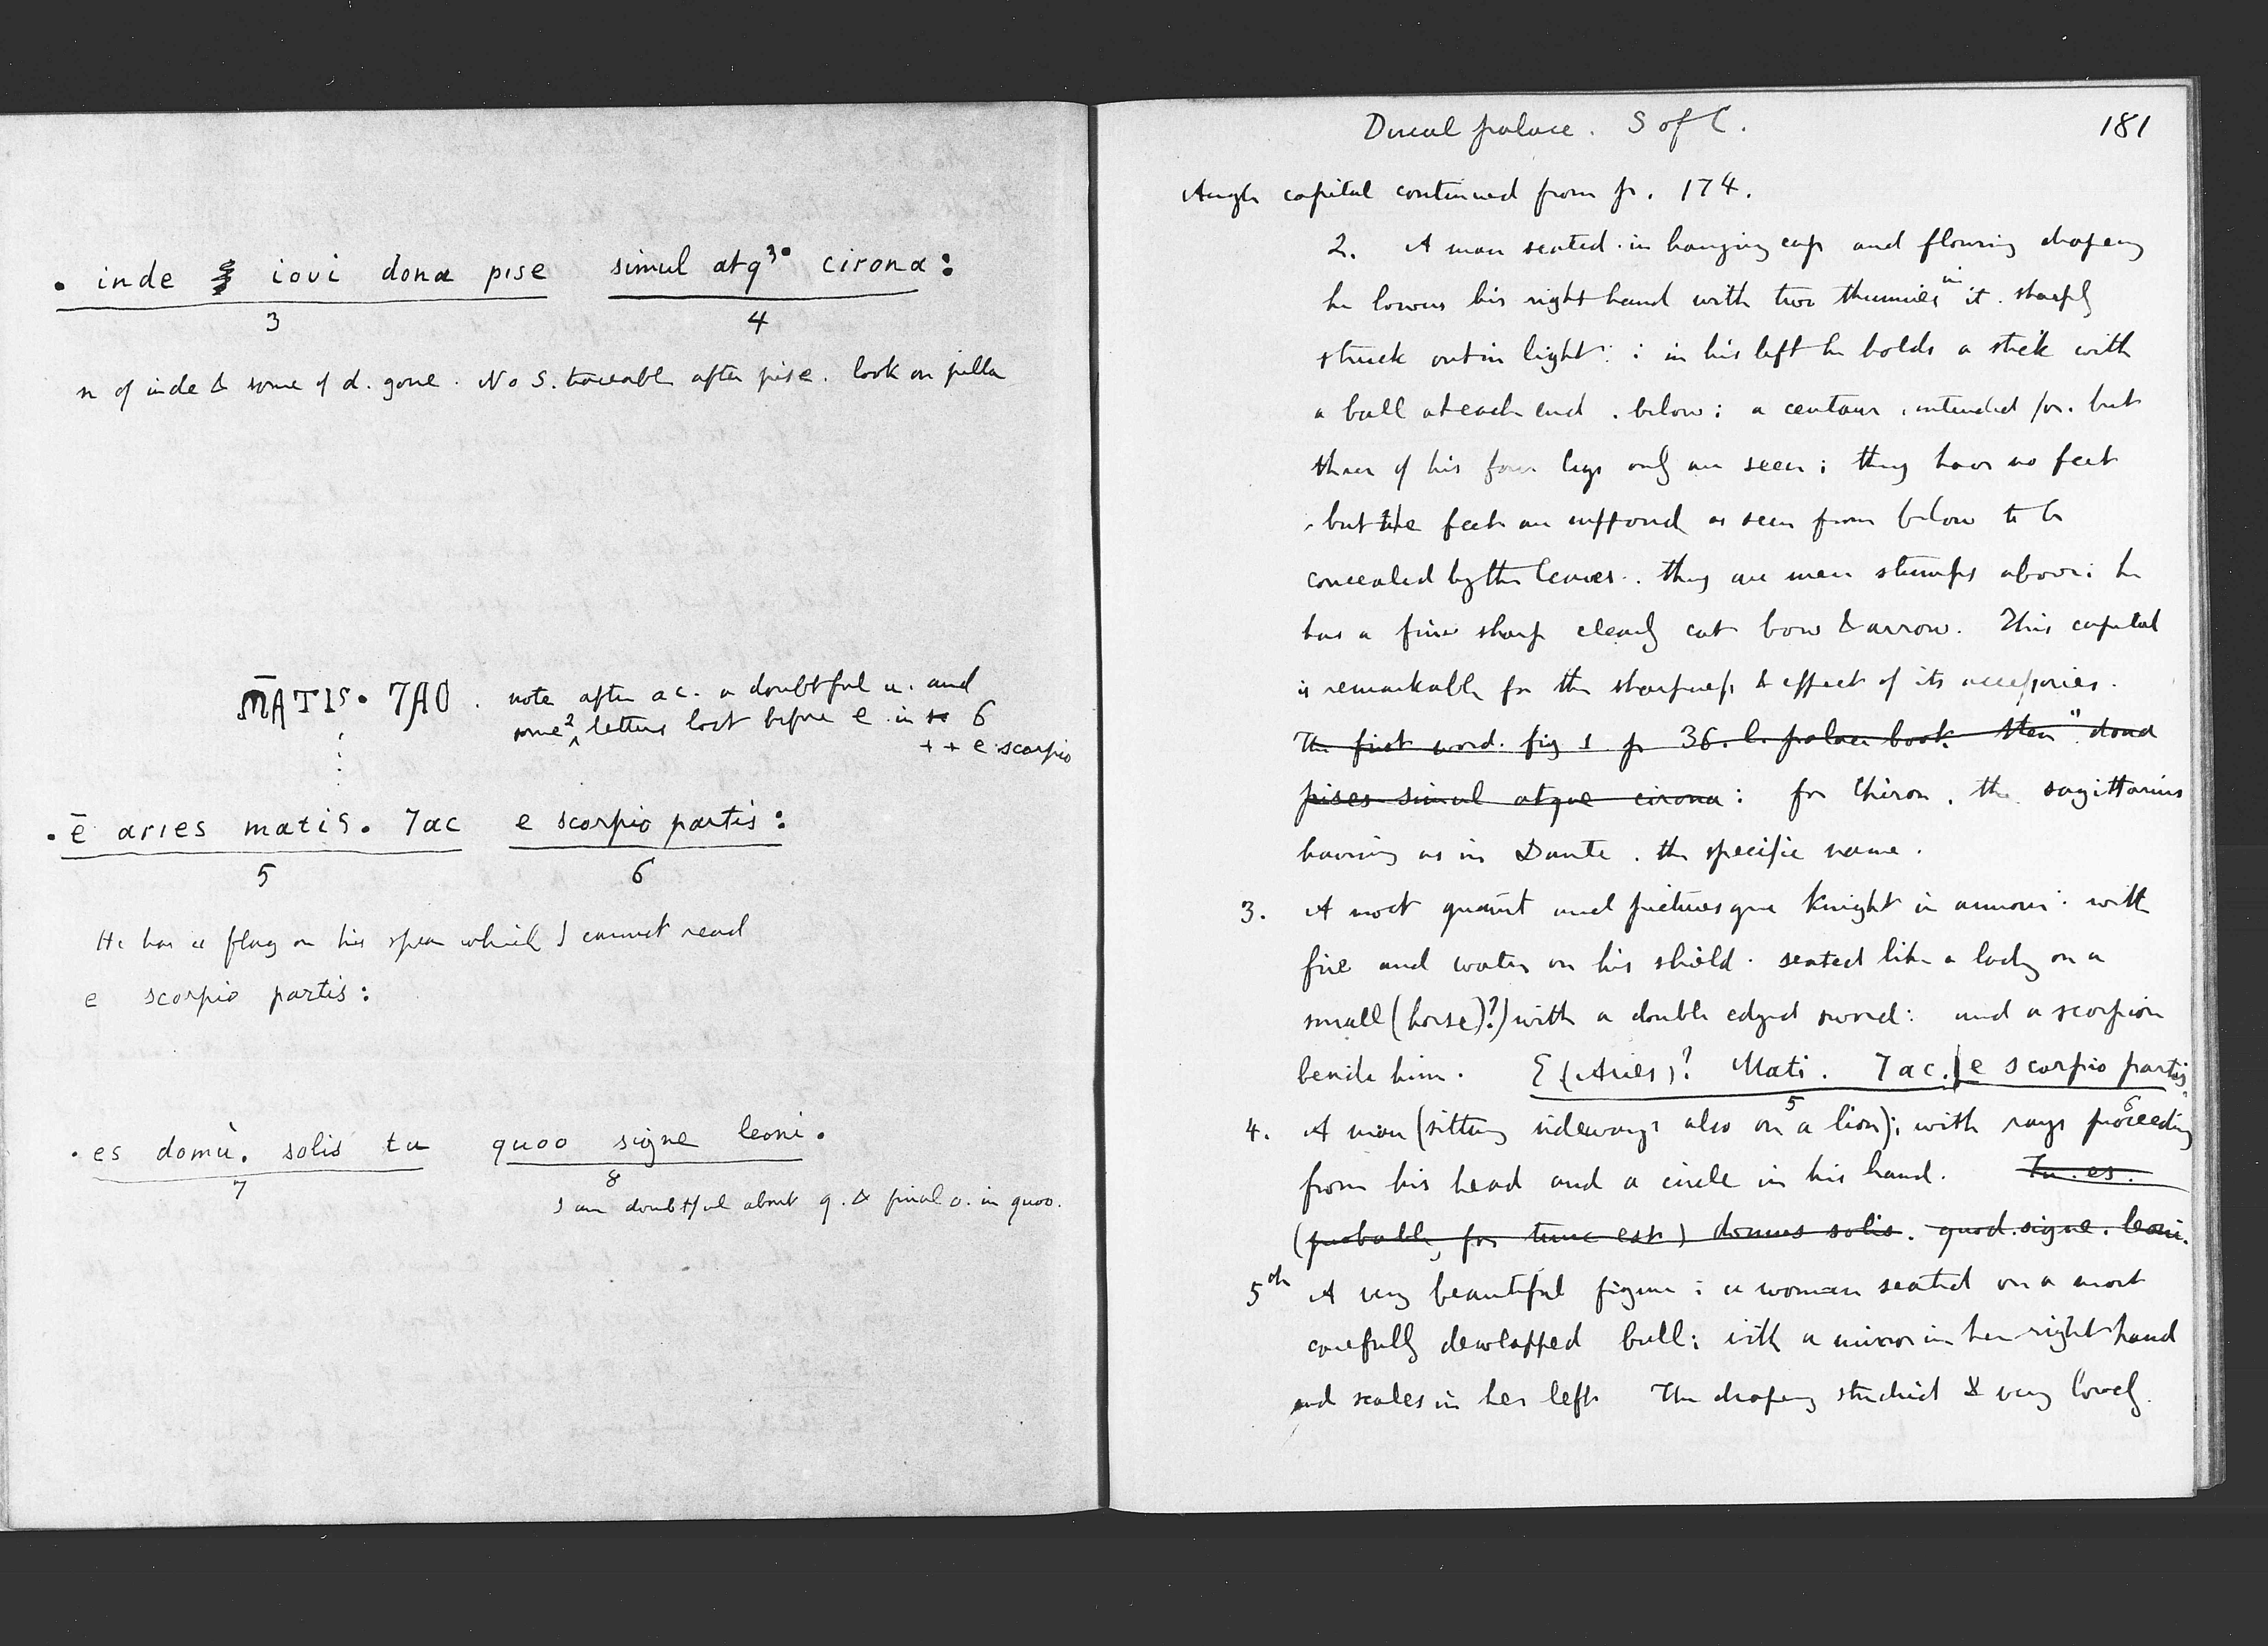 • inde iovi dona pise simul atq3• cirona:
3 4
n of inde & some of d. gone. No S. traceable after pise. look on
M̄ATIS• 7AC. note after ac. a doubtful u. and
some 2 letters lost before e in 6
+ + e scorpio
• ē aries matis. 7ac e scorpio partis:
5 6
He has a flag on his spear which I cannot read
e scorpio partis:
• es domù. solis tu quoo signe leoni.
7 8
I am doubtful about q. & final o. in quoo.
Ducal palace. S of C. 181
Angle capital continued from p. 174.
2. A man seated in hanging cap and flowing drapery
he lowers his right hand with two thunnies in it. sharply
struck out in light: in his left he holds a stick with
a ball at each end. below: a centaur, intended for. but
three of his four legs only are seen; they have no feet
but the feet are supposed as seen from below to be
concealed by the leaves. they are mere stumps above: he
has a fine sharp clearly cut bow & arrow. This capital
is remarkable for the sharpness & effect of its accessories.
The first word. fig 1 p 36. l. palace book then "dona
pises simul atque cirona: for Chiron, the sagittarius
having as in Dante. the specific name.
3. A most quaint and picturesque Knight in armour: with
fire and water on his shield. seated like a lady on a
small (horse)?) with a double edged sword: and a scorpion
beside him. E (Aries)? Mati. 7ac. | e scorpio partis.
5 6
4. A man (sitting sideways also on a lion); with rays proceeding
from his head and a circle in his hand. Tu. es.
(probably for tunc est) domus solis. quod. signe. leoni.
5th A very beautiful figure: a woman seated on a most
carefully dewlapped bull: with a mirror in her right hand
and scales in her left The drapery studied & very lovely.